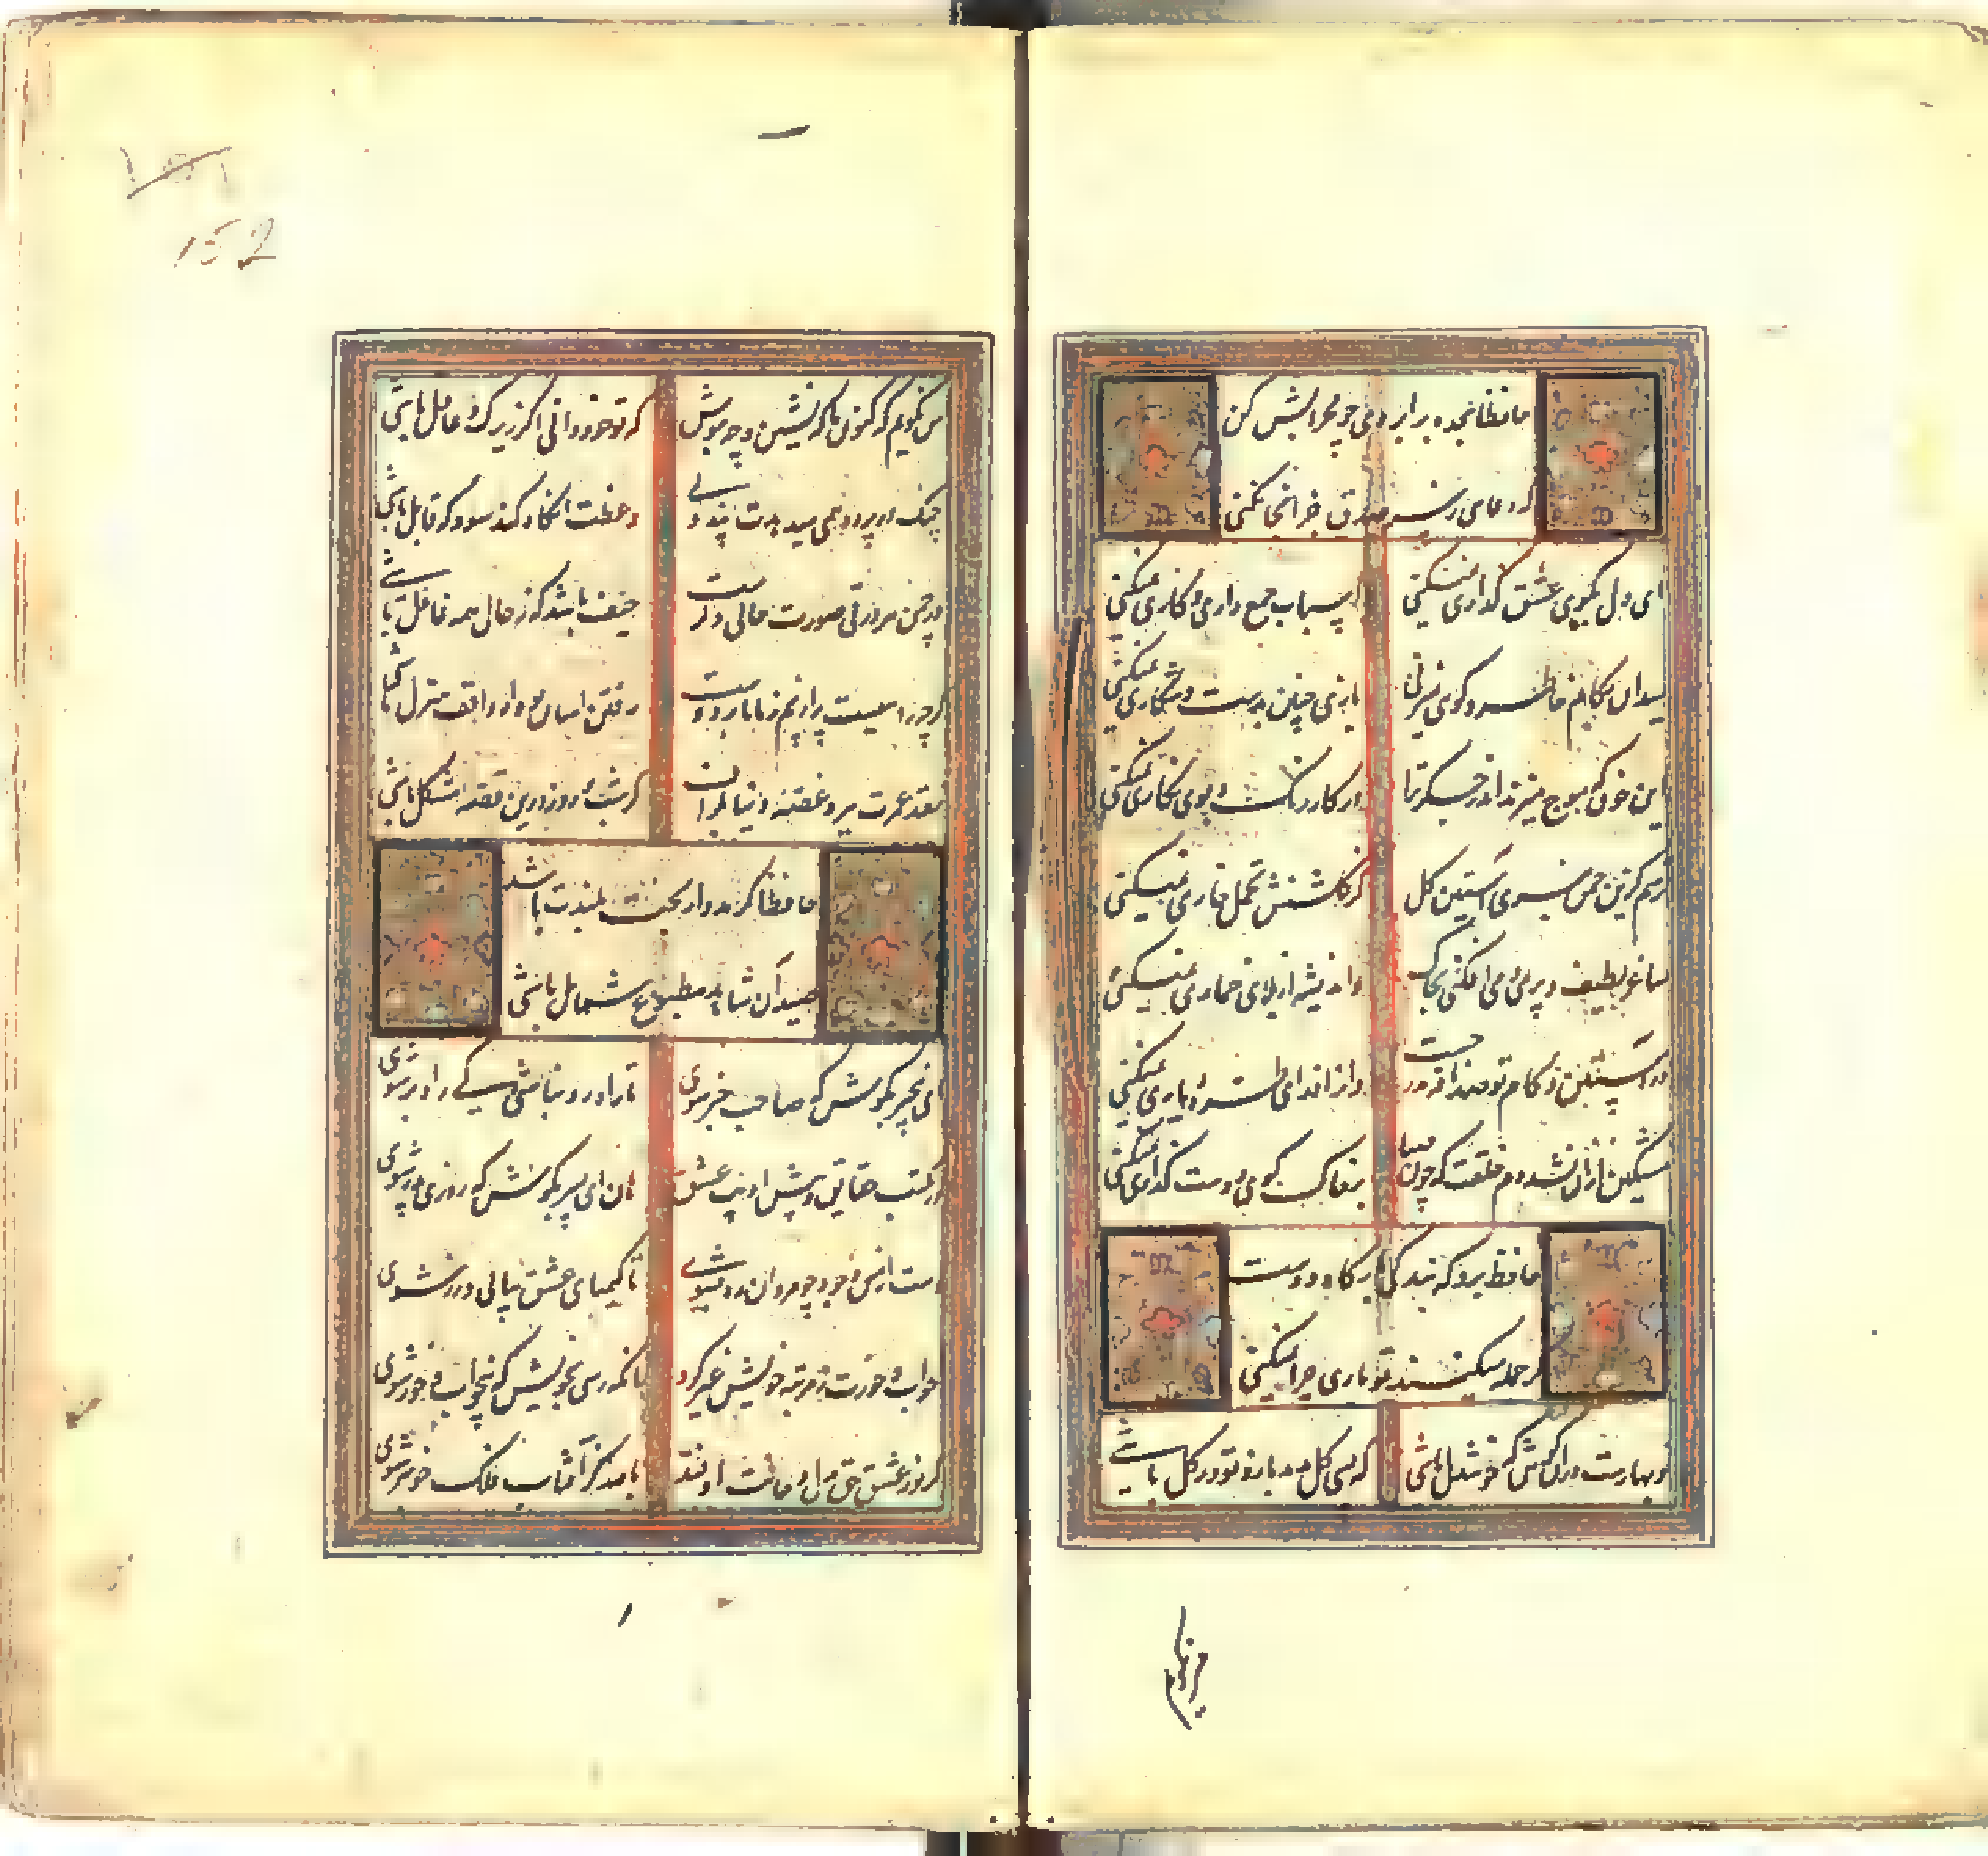 حافظا سجده بر ابروی چو محرابش کن
که دعایی ز سر صدق جز آنجا نکنی
ای دل بکوی عشق گذاری نمیکنی
اسباب جمع داری و کاری نمیکنی
میدان بکام خاطر و گوی نمیزنی
بازی چنین بدست و شکاری نمیکنی
این خون که موج میزند اندر جگر ترا
در کار رنگ و بوی نگاری نمیکنی
ترسم کزین چمن نبری آستین گل
کز گلشنش تحمل خاری نمیکنی
ساغر لطیف و پر می و می افکنی بخاک
و اندیشه از بلای خماری نمیکنی
در آستین کام تو صد نافه مدرجست
وانرا فدای طره یاری نمیکنی
مشکین ازان نشد دم خلقت که چون صبا
بر خاک کوی دوست گذاری نمیکنی
حافظ برو که بندگی بارگاه دوست
گر جمله میکنند تو باری نمیکنی
نوبهارست دران کوش که خوشدل باشی
که بسی گل بدمد باز و تو در گل باشی
من نگویم
من نگویم که کنون با که نشین و چه بنوش
که تو خود دانی اگر زیرک و عاقل باشی
چنگ در پرده همی میدهدت پند ولی
وعظت آنگاه کند سود که قابل باشی
در چمن هر ورقی صورت حالی دگرست
حیف باشد که ز حال همه غافل باشی
گرچه راهیست پر از بیم ز ما تا بر دوست
رفتن آسان بود ار واقف منزل باشی
نقد عمرت ببرد غصه دنیا بگزاف
گر شب و روز درین قصه مشکل باشی
حافظا گر مدد از بخت بلندت باشد
صید آن شاهد مطبوع شمایل باشی
ای بیخبر بکوش که صاحب خبر شوی
تا راهرو نباشی کی راهبر شوی
در مکتب حقایق و پیش ادیب عشق
هان ای پسر بکوش که روزی پدر شوی
دست از مس وجود چو مردان ره بشوی
تا کیمیای عشق بیابی و زر شوی
خواب و خورت ز مرتبه خویش غیر کرد
آنگه رسی بخویش که بیخواب و خور شوی
گر نور عشق حق بدل و جانت اوفتد
بالله کز آفتاب فلک خوبتر شوی
152